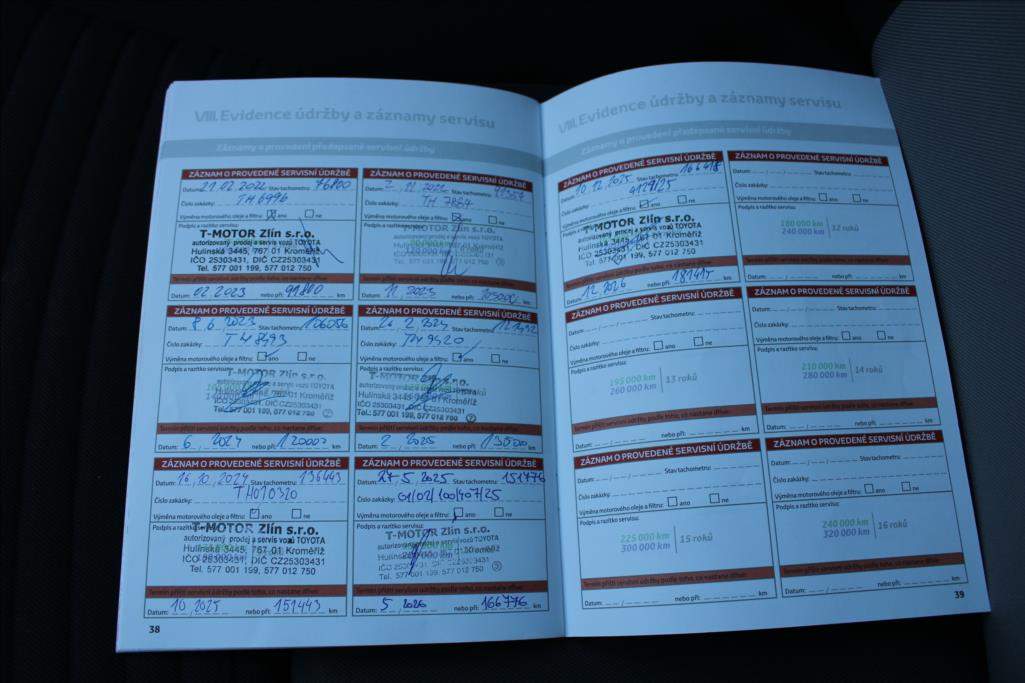 VIII. Evidence údržby a záznamy servisu
Záznamy o provedení předepsané servisní údržby
ZÁZNAM O PROVEDENÉ SERVISNÍ ÚDRŽBĚ
Datum: 21.02.2022 Stav tachometru: 76800
Číslo zakázky: TH6996
Výměna motorového oleje a filtru: ano ne
Podpis a razítko servisu:
T-MOTOR Zlín s.r.o.
autorizovaný prodej a servis vozů TOYOTA
Hulínská 3445, 767 01 Kroměříž
IČO 25303431, DIČ CZ25303431
Tel. 577 001 199, 577 012 750
Termín příští servisní údržby podle toho, co nastane dříve:
Datum: 02.2023 nebo při: 91800 km
ZÁZNAM O PROVEDENÉ SERVISNÍ ÚDRŽBĚ
Datum: 11.2022 Stav tachometru:
Číslo zakázky: TH 7864
Výměna motorového oleje a filtru: ano ne
Podpis a razítko servisu:
T-MOTOR Zlín s.r.o.
autorizovaný prodej a servis vozů TOYOTA
Hulínská 3445, 767 01 Kroměříž
IČO 25303431, DIČ CZ25303431
Tel. 577 001 199, 577 012 750
Termín příští servisní údržby podle toho, co nastane dříve:
Datum: 11.2023 nebo při: km
ZÁZNAM O PROVEDENÉ SERVISNÍ ÚDRŽBĚ
Datum: 8.6.2023 Stav tachometru: 106056
Číslo zakázky: TH 8493
Výměna motorového oleje a filtru: ano ne
Podpis a razítko servisu:
T-MOTOR Zlín s.r.o.
autorizovaný prodej a servis vozů TOYOTA
Hulínská 3445, 767 01 Kroměříž
IČO 25303431, DIČ CZ25303431
Tel.: 577 001 199, 577 012 750
Termín příští servisní údržby podle toho, co nastane dříve:
Datum: 6.2024 nebo při: 120000 km
ZÁZNAM O PROVEDENÉ SERVISNÍ ÚDRŽBĚ
Datum: 2.2024 Stav tachometru:
Číslo zakázky: TH 9520
Výměna motorového oleje a filtru: ano ne
Podpis a razítko servisu:
T-MOTOR Zlín s.r.o.
autorizovaný prodej a servis vozů TOYOTA
Hulínská 3445, 767 01 Kroměříž
IČO 25303431, DIČ CZ25303431
Tel.: 577 001 199, 577 012 750
Termín příští servisní údržby podle toho, co nastane dříve:
Datum: 2.2025 nebo při: km
ZÁZNAM O PROVEDENÉ SERVISNÍ ÚDRŽBĚ
Datum: 16.10.2024 Stav tachometru: 136443
Číslo zakázky: TH010320
Výměna motorového oleje a filtru: ano ne
Podpis a razítko servisu:
T-MOTOR Zlín s.r.o.
autorizovaný prodej a servis vozů TOYOTA
Hulínská 3445, 767 01 Kroměříž
IČO 25303431, DIČ CZ25303431
Tel. 577 001 199, 577 012 750
Termín příští servisní údržby podle toho, co nastane dříve:
Datum: 10.2025 nebo při: 151443 km
ZÁZNAM O PROVEDENÉ SERVISNÍ ÚDRŽBĚ
Datum: 27.5.2025 Stav tachometru: 151776
Číslo zakázky: 01/02/100407/25
Výměna motorového oleje a filtru: ano ne
Podpis a razítko servisu:
T-MOTOR Zlín s.r.o.
autorizovaný prodej a servis vozů TOYOTA
Hulínská 3445, 767 01 Kroměříž
IČO 25303431, DIČ CZ25303431
Tel. 577 001 199, 577 012 750
Termín příští servisní údržby podle toho, co nastane dříve:
Datum: 5.2026 nebo při: 166776 km
38
VIII. Evidence údržby a záznamy servisu
Záznamy o provedení předepsané servisní údržby
ZÁZNAM O PROVEDENÉ SERVISNÍ ÚDRŽBĚ
Datum: 10.12.2025 Stav tachometru:
Číslo zakázky: 4129/25
Výměna motorového oleje a filtru: ano ne
Podpis a razítko servisu:
T-MOTOR Zlín s.r.o.
autorizovaný prodej a servis vozů TOYOTA
Hulínská 3445, 767 01 Kroměříž
IČO 25303431, DIČ CZ25303431
Tel. 577 001 199, 577 012 750
Termín příští servisní údržby podle toho, co nastane dříve:
Datum: 12.2026 nebo při: 181415 km
ZÁZNAM O PROVEDENÉ SERVISNÍ ÚDRŽBĚ
Datum: Stav tachometru:
Číslo zakázky:
Výměna motorového oleje a filtru: ano ne
Podpis a razítko servisu:
180 000 km
240 000 km 12 roků
Termín příští servisní údržby podle toho, co nastane dříve:
Datum: nebo při: km
ZÁZNAM O PROVEDENÉ SERVISNÍ ÚDRŽBĚ
Datum: Stav tachometru:
Číslo zakázky:
Výměna motorového oleje a filtru: ano ne
Podpis a razítko servisu:
195 000 km
260 000 km 13 roků
Termín příští servisní údržby podle toho, co nastane dříve:
Datum: nebo při: km
ZÁZNAM O PROVEDENÉ SERVISNÍ ÚDRŽBĚ
Datum: Stav tachometru:
Číslo zakázky:
Výměna motorového oleje a filtru: ano ne
Podpis a razítko servisu:
210 000 km
280 000 km 14 roků
Termín příští servisní údržby podle toho, co nastane dříve:
Datum: nebo při: km
ZÁZNAM O PROVEDENÉ SERVISNÍ ÚDRŽBĚ
Datum: Stav tachometru:
Číslo zakázky:
Výměna motorového oleje a filtru: ano ne
Podpis a razítko servisu:
225 000 km
300 000 km 15 roků
Termín příští servisní údržby podle toho, co nastane dříve:
Datum: nebo při: km
ZÁZNAM O PROVEDENÉ SERVISNÍ ÚDRŽBĚ
Datum: Stav tachometru:
Číslo zakázky:
Výměna motorového oleje a filtru: ano ne
Podpis a razítko servisu:
240 000 km
320 000 km 16 roků
Termín příští servisní údržby podle toho, co nastane dříve:
Datum: nebo při: km
39